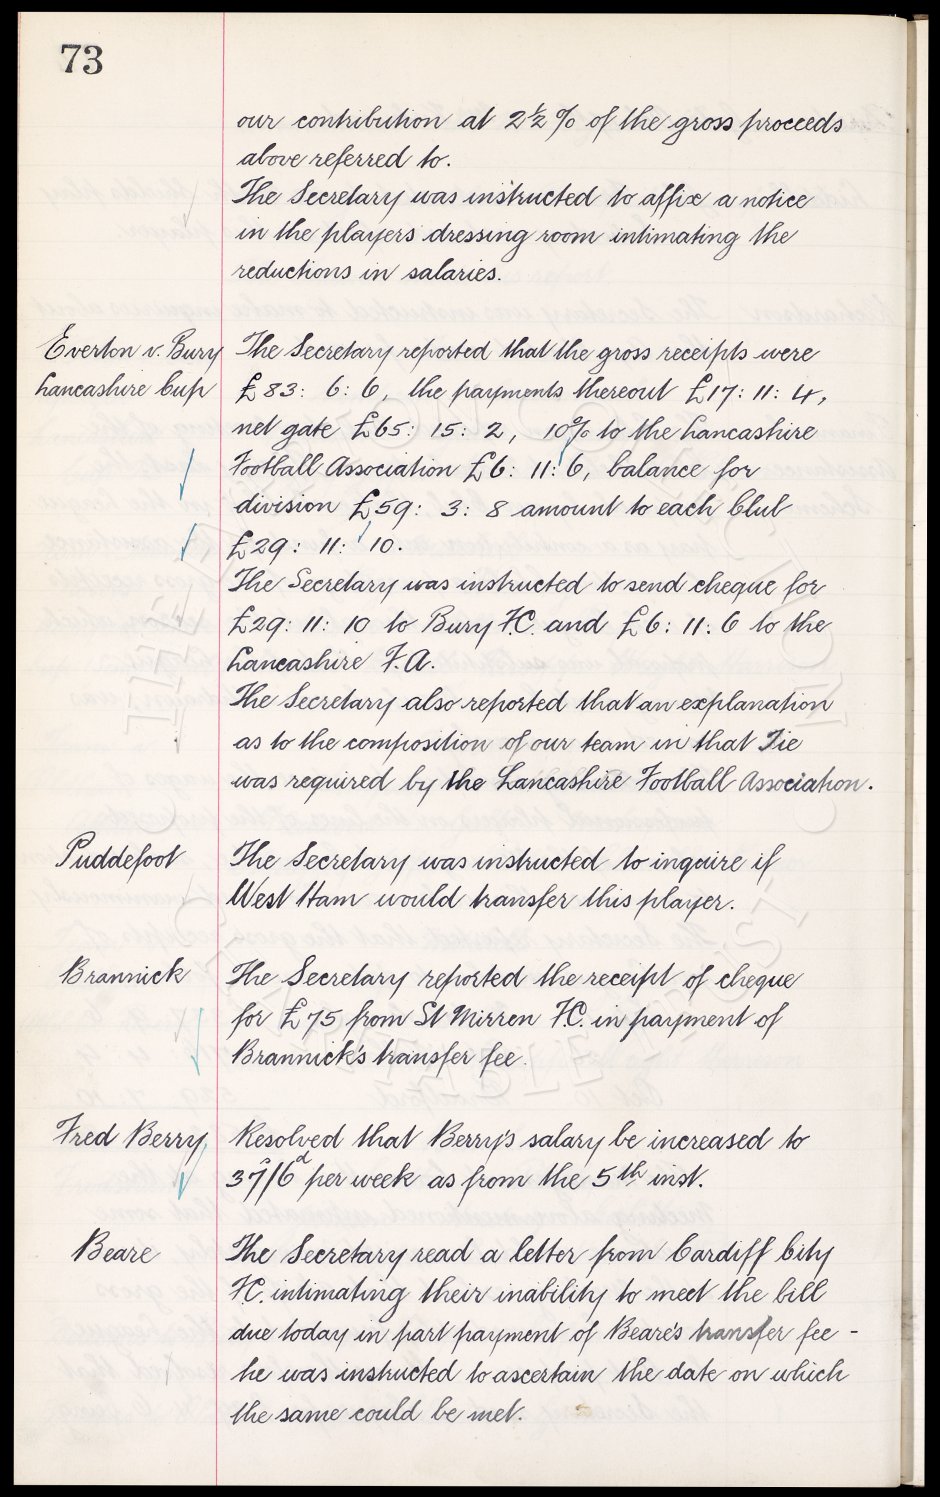 73
our contribution at 2½% of the gross proceeds
above referred to.
The Secretary was instructed to affix a notice
in the players dressing room intimating the
reductions in salaries.
Everton v. Bury The Secretary reported that the gross receipts were
Lancashire Cup £83: 6: 6, the payments thereout £17: 11: 4,
net gate £65: 15: 2, 10% to the Lancashire
Football Association £6: 11: 6, balance for
division £59: 3: 8 amount to each Club
£29: 11: 10.
The Secretary was instructed to send cheque for
£29: 11: 10 to Bury F.C. and £6: 11: 6 to the
Lancashire F.A.
The Secretary also reported that an explanation
as to the composition of our team in that Tie
was required by the Lancashire Football Association.
Puddefoot The Secretary was instructed to inquire if
West Ham would transfer this player.
Brannick The Secretary reported the receipt of cheque
for £75 from St Mirren F.C. in payment of
Brannick's transfer fee.
Fred Berry Resolved that Berry's salary be increased to
37s/6d per week as from the 5th inst.
Beare The Secretary read a letter from Cardiff City
F.C. intimating their inability to meet the bill
due today in part payment of Beare's transfer fee -
he was instructed to ascertain the date on which
the same could be met.